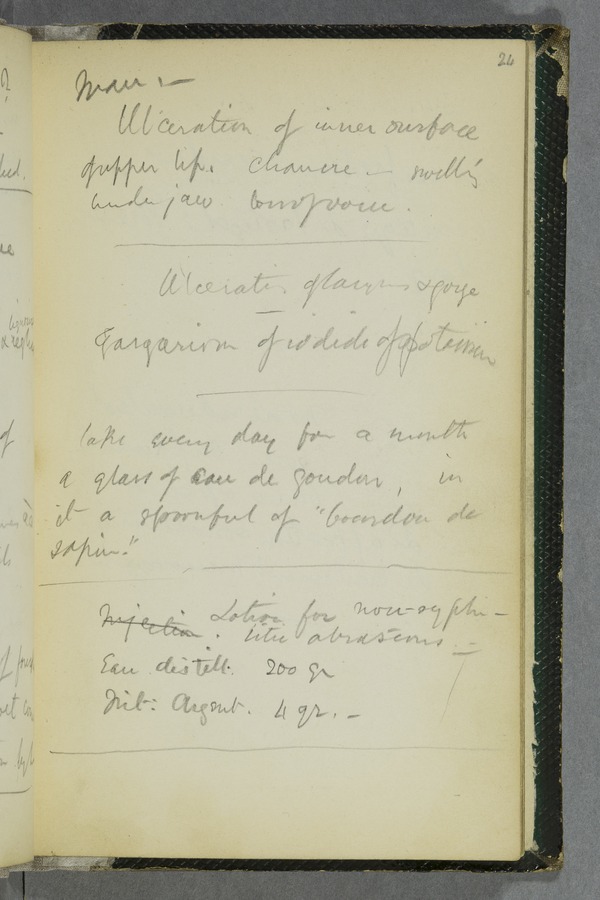 24
Man :—
Ulceration of inner surface
of upper lip. chancre — swell'g
under jaw
Ulceratin of larynx & gorge
Gargarism of iodide of potassium
Take every day for a month
a glass of eau de goudron, in
it a spoonful of "bourdon de
sapin."
Injection. Lotion for non-syphi-
litic abrasions. —
Eau distill. 200 gr
Nit: Argent. 4 gr. —